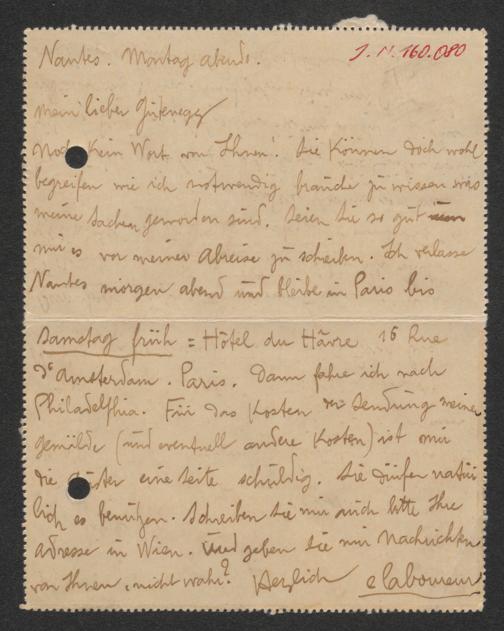 Nantes. Montag abends.
J.N. 160.080
mein lieber Gutenegg
noch kein Wort von Ihnen! Sie können doch wohl
begreifen wie ich notwendig brauche zu wissen was
meine Sachen geworden sind. Seien Sie so gut
mir es vor meiner Abreise zu schreiben. Ich verlasse
Nantes morgen abend und bleibe in Paris bis
Samstag früh = Hôtel du Hâvre 16 Rue
d'Amsterdam. Paris. Dann fahre ich nach
Philadelphia. Für das Kosten der Sendung meiner
gemälde (und eventuell andere Kosten) ist mir
die eine Seite schuldig. Sie dürfen natür
lich es benutzen. Schreiben Sie mir auch bitte Ihre
adresse in Wien. Und geben Sie mir Nachrichten
von Ihnen, nicht wahr? Herzlich eLaboureur